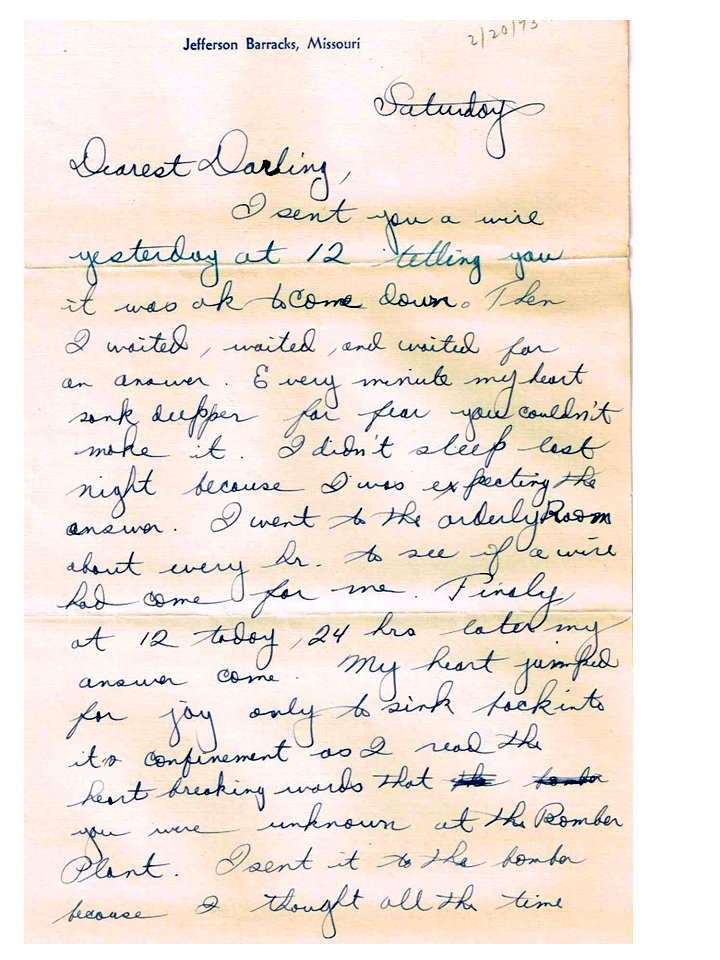 Jefferson Barracks, Missouri
2/20/43
Saturday
Dearest Darling,
I sent you a wire
yesterday at 12 telling you
it was ok to come down. Then
I waited, waited, and waited for
an answer. Every minute my heart
sank deepper for fear you couldn't
make it. I didn't sleep last
night because I was expecting the
answer. I went to the orderly Room
about every hr. to see if a wire
had come for me. Finaly
at 12 today, 24 hrs later my
answer come. My heart jumped
for joy only to sink back into
its confinement as I read the
heart breaking words that the bomber
you were unknown at the Bomber
Plant. I sent it to the bomber
because I thought all the time